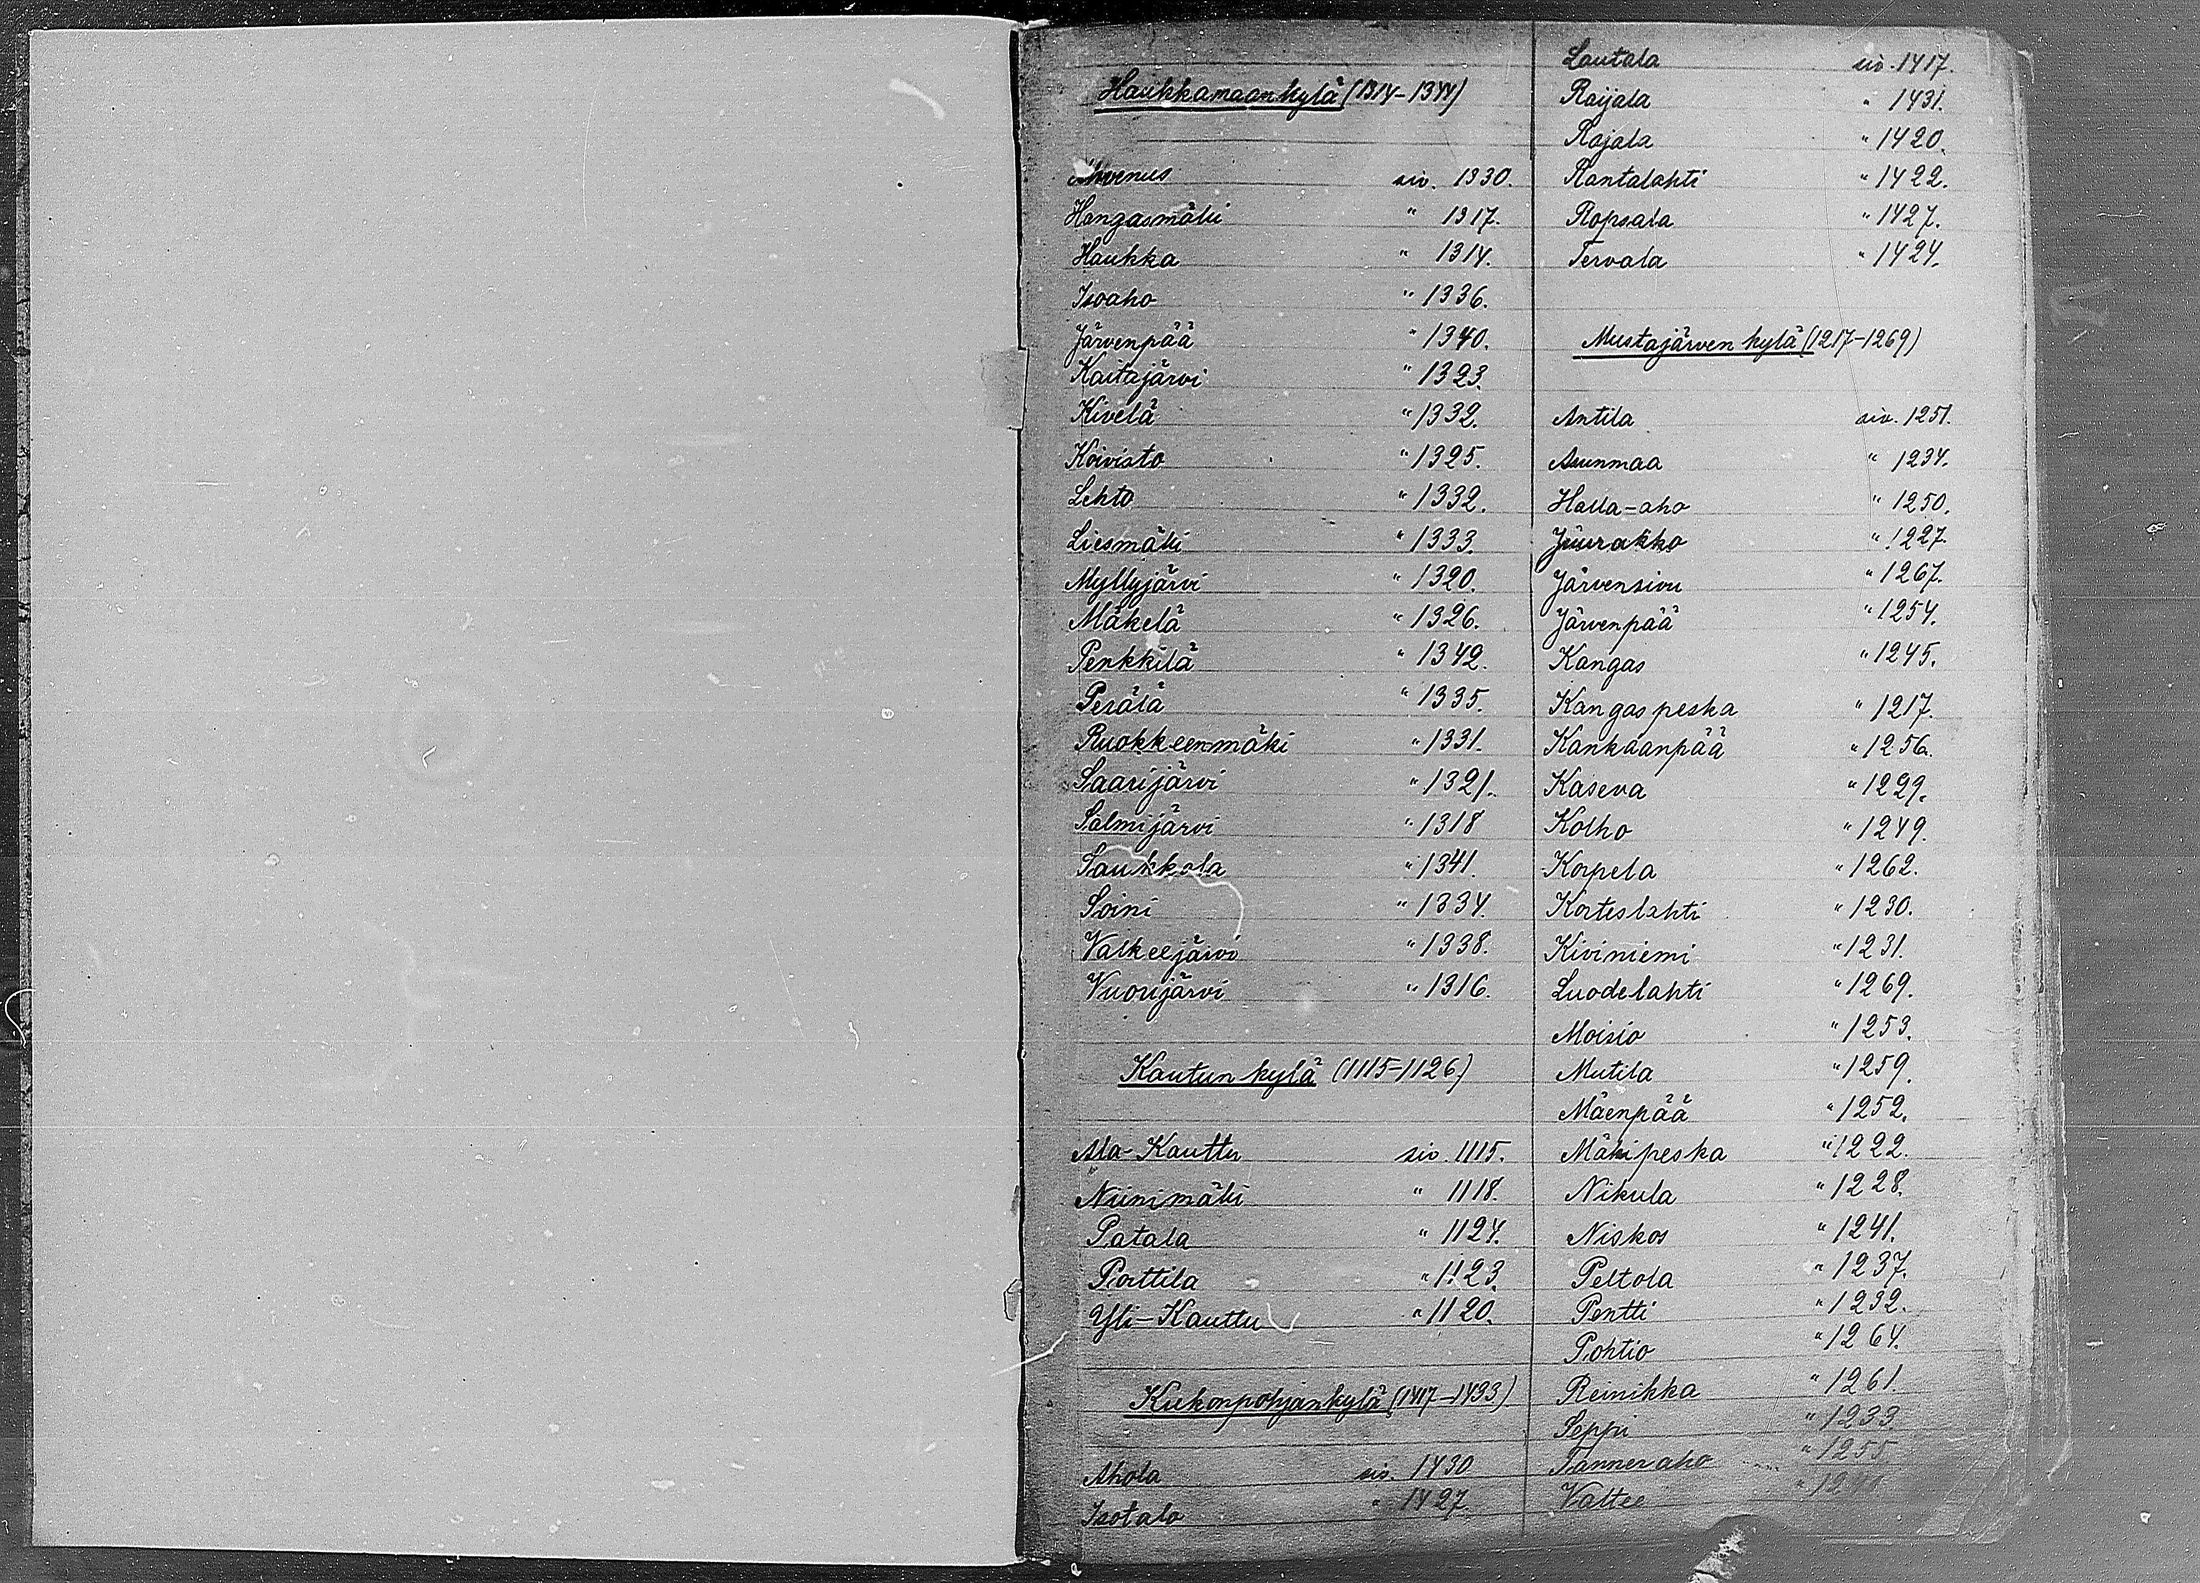 Haukkamaankylä (1314-1344)
Ahvenus siv. 1330.
Hangasmäki " 1317.
Haukka " 1314.
Isoaho " 1336.
Järvenpää " 1340.
Kaitajärvi " 1323.
Kivelä " 1332.
Koivisto " 1325.
Lehto " 1332.
Liesmäki " 1333.
Myllyjärvi " 1320.
Mäkelä " 1326.
Penkkilä " 1342.
Perälä " 1335.
Ruokkeenmäki " 1331.
Saarijärvi " 1321.
Salmijärvi " 1318
Saukkola " 1341.
Soini " 1334.
Valkeejärvi " 1338.
Vuorijärvi " 1316.
Kautun kylä (1115-1126)
Ala-Kauttu siv. 1115.
Niinimäki " 1118.
Patala " 1124.
Porttila " 1123.
Yli-Kauttu " 1120.
Kukonpohjankylä (1417-1433)
Ahola siv. 1430
Isotalo " 1427
Lautala siv. 1417.
Raijala " 1431.
Rajala " 1420.
Rantalahti " 1422.
Ropsala " 1427.
Tervala " 1424.
Mustajärven kylä (1217-1269)
Antila siv. 1251.
Asunmaa " 1234.
Halla-aho " 1250.
Juurakko " 1227.
Järvensivu " 1267.
Järvenpää " 1254.
Kangas " 1245.
Kangaspeska " 1217.
Kankaanpää " 1256.
Kaseva " 1229.
Kolho " 1249.
Korpela " 1262.
Korteslahti " 1230.
Kiviniemi " 1231.
Luodelahti " 1269.
Moisio " 1253.
Mutila " 1259.
Mäenpää " 1252.
Mäkipeska " 1222.
Nikula " 1228.
Niskos " 1241.
Peltola " 1237.
Pentti " 1232.
Pohtio " 1264.
Reinikka " 1261.
Seppu " 1233.
Tanneraho " 1255
Valtee "